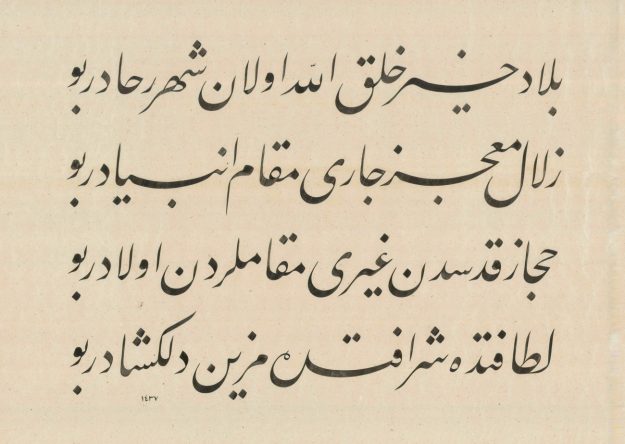 بلاد خير خلق الله اولان شهر رحادر بو
زلال معجز جارى مقام انبيادر بو
حجاز قدسدن غيرى مقاملردن اولادر بو
لطافتده شرافتده مزين دلكشادر بو
١٤٣٧